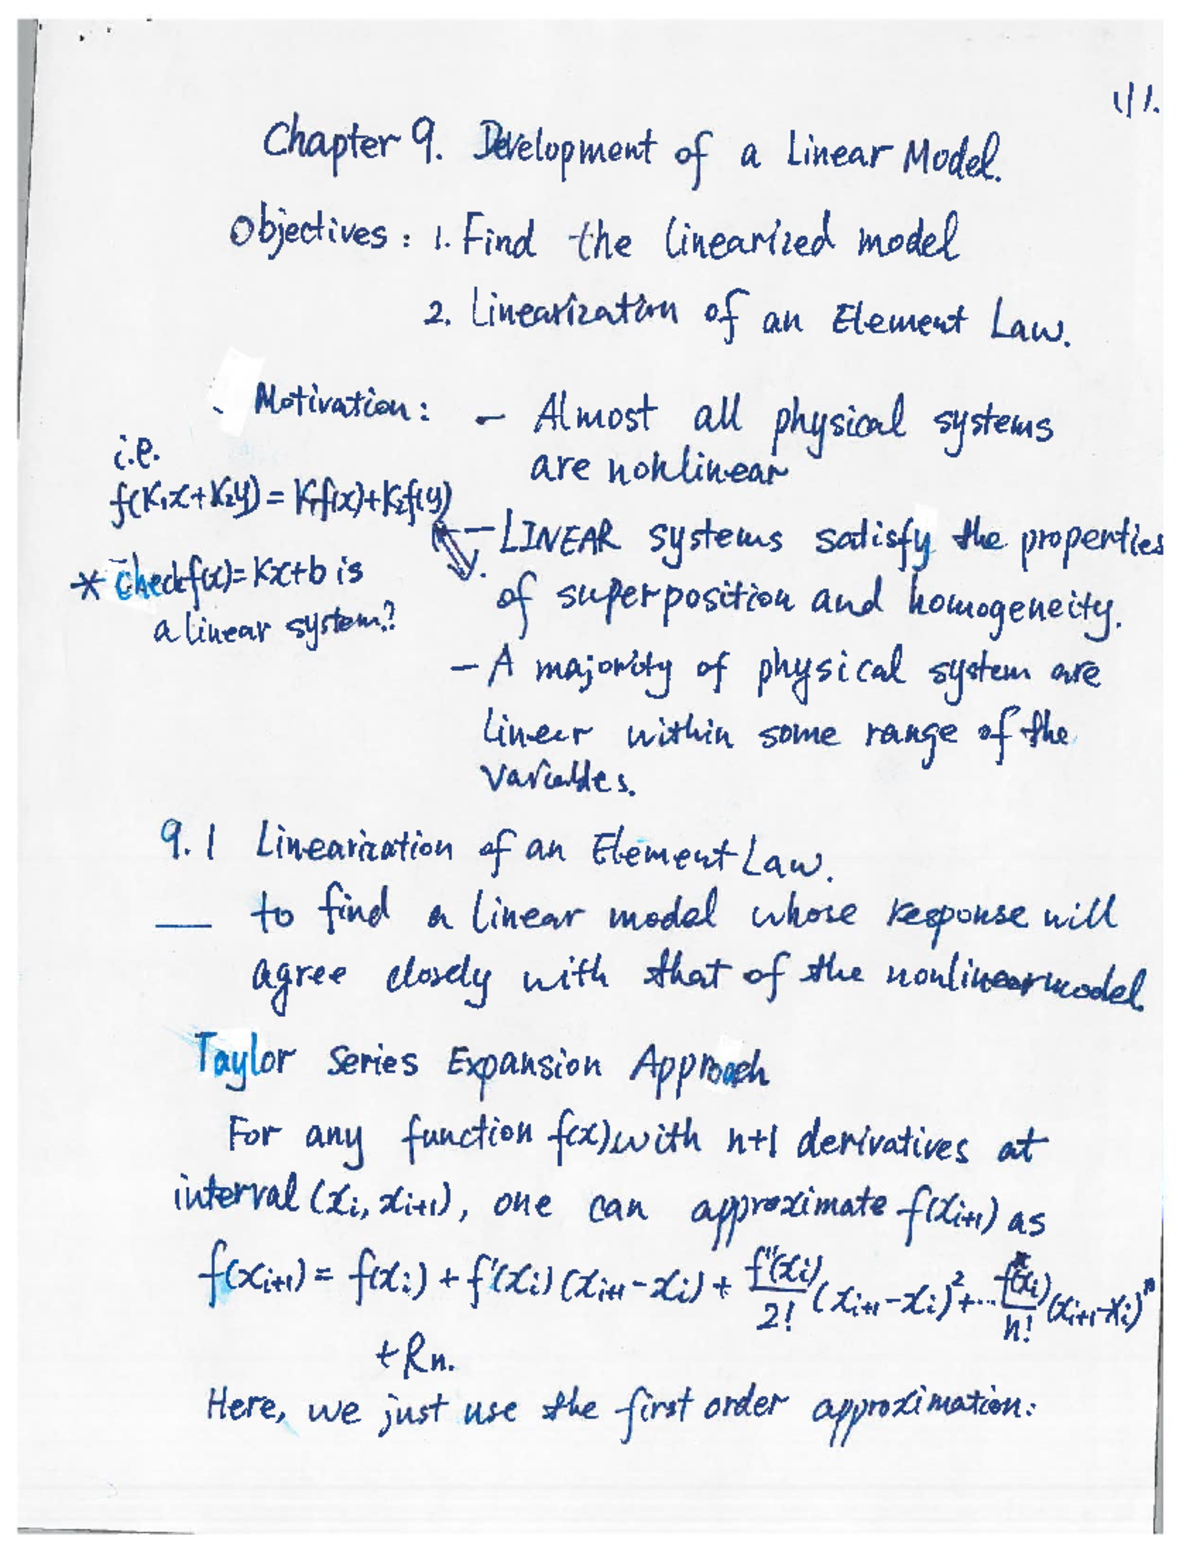 1/1.
Chapter 9. Development of a Linear Model.
Objectives: 1. Find the linearized model
2. Linearization of an Element Law.
Motivation: - Almost all physical systems
are nonlinear
i.e.
f(K₁x+K₂y) = K₁f(x)+K₂f(y)
- LINEAR systems satisfy the properties
of superposition and homogeneity.
* Check f(x)=Kx+b is
a linear system?
- A majority of physical system are
linear within some range of the
variables.
9.1 Linearization of an Element Law.
— to find a linear model whose response will
agree closely with that of the nonlinear model
Taylor Series Expansion Approach
For any function f(x) with n+1 derivatives at
interval (xᵢ, xᵢ₊₁), one can approximate f(xᵢ₊₁) as
f(xᵢ₊₁) = f(xᵢ) + f'(xᵢ)(xᵢ₊₁-xᵢ) + f''(xᵢ)/2! (xᵢ₊₁-xᵢ)² + ... fⁿ(xᵢ)/n! (xᵢ₊₁-xᵢ)ⁿ
+ Rn.
Here, we just use the first order approximation: